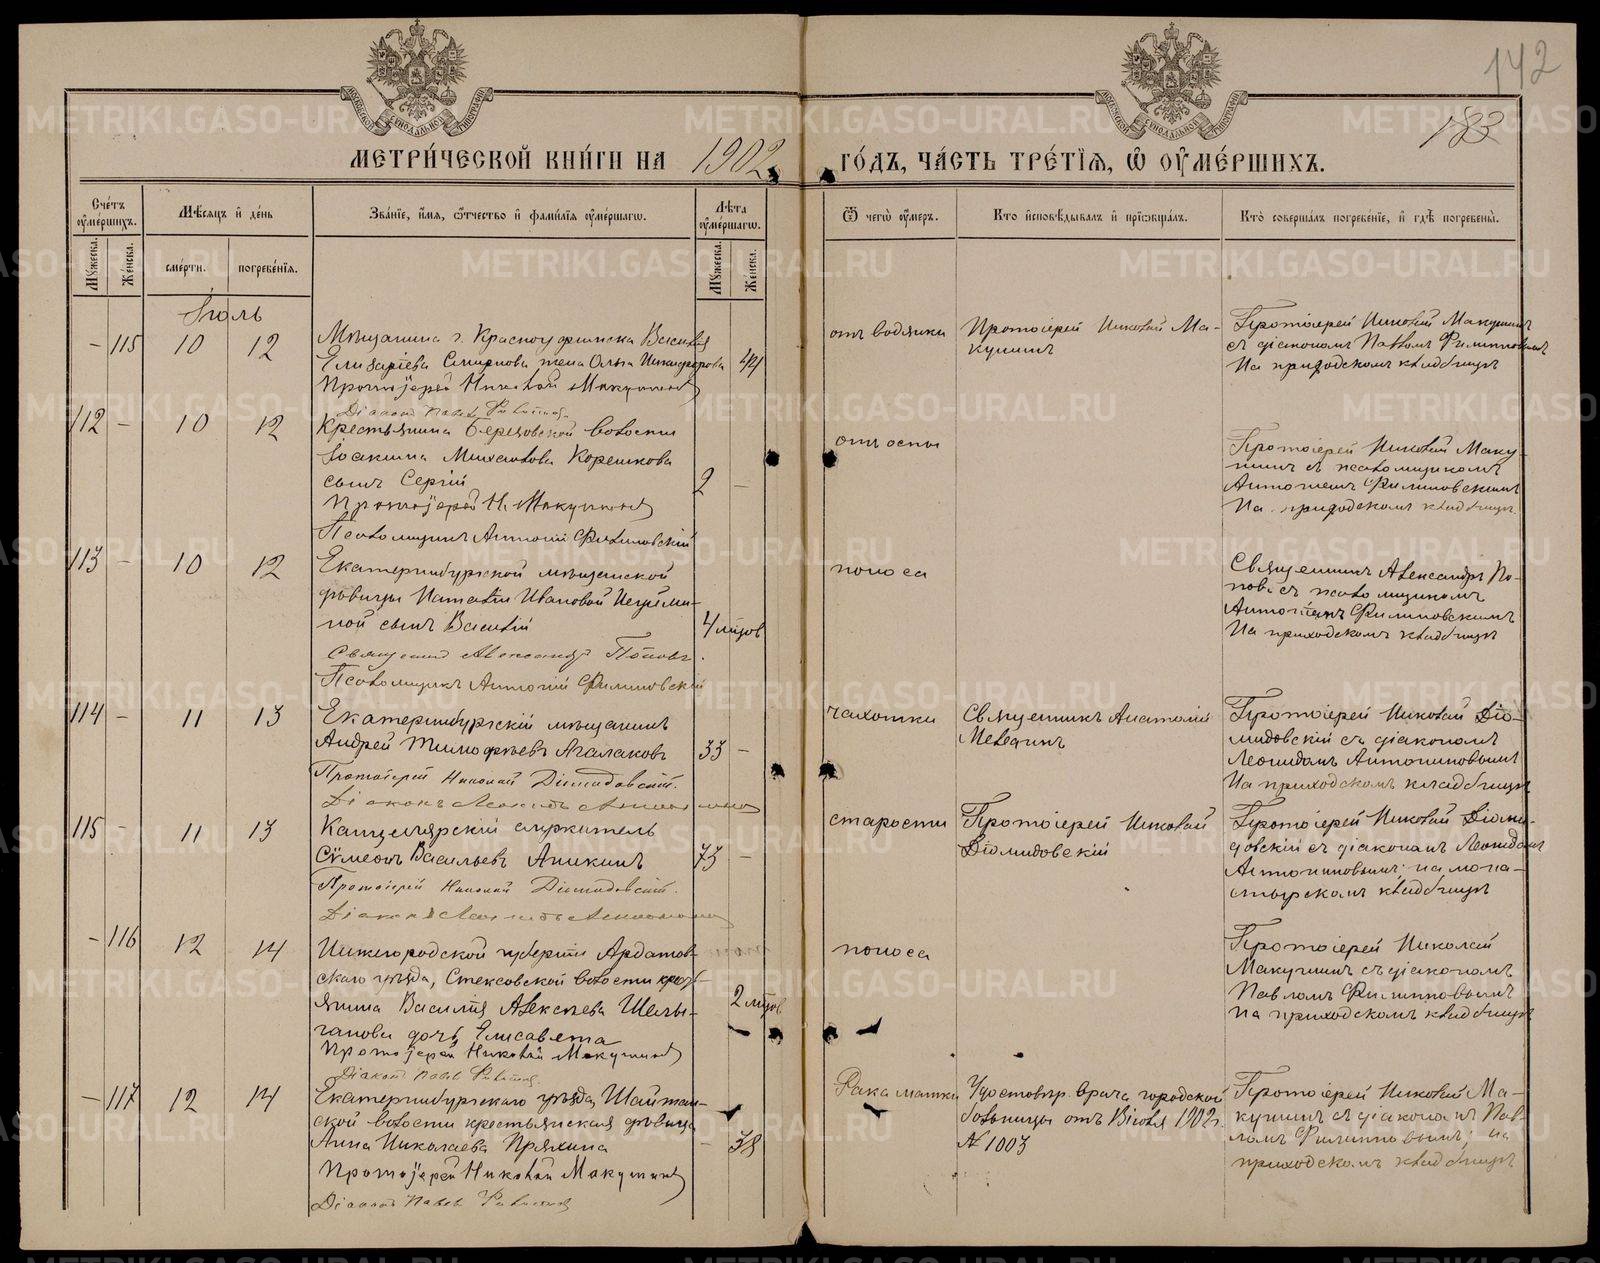 142
183
МОСКОВСКОЙ СѴНОДАЛЬНОЙ ТИПОГРАФІИ
МОСКОВСКОЙ СѴНОДАЛЬНОЙ ТИПОГРАФІИ
МЕТРИ́ЧЕСКОЙ КНИ́ГИ НА 1902 ГО́ДЪ, ЧА́СТЬ ТРЕ́ТІЯ, Ѡ ОУМЕ́РШИХЪ.
Сче́тъ оуме́ршихъ.
Мужеска.
Женска.
Мѣсяцъ и де́нь
сме́рти.
погребе́нія.
Зва́ніе, и́мя, о́тчество и фами́лія оуме́ршагѡ.
Лѣта оуме́ршагѡ.
Мужеска.
Женска.
Ѿ чегѡ̀ оу́меръ.
Кто̀ и҆сповѣ́дывалъ и҆ прїѡбща́лъ.
Кто̀ соверша́лъ погребе́ніе, и҆ гдѣ̀ погребены̀.
Іюль
- 115 10 12
Мѣщанина г. Красноуфимска Василія
Елизаріева Смирнова жена Ольга Никифорова 44
Протоіерей Николай Макушинъ
Діаконъ Павелъ
отъ водянки
Протоіерей Николай Ма-
кушинъ
Протоіерей Николай Макушинъ
съ діакономъ Павломъ
На приходскомъ кладбищѣ
112 - 10 12
Крестьянина Березовской волости
Іоакима Михаилова Корешкова
сынъ Сергій 2 -
Протоіерей Н. Макушинъ
Псаломщикъ Антоній Филиповскій
отъ оспы
Протоіерей Николай Маку-
шинъ съ псаломщикомъ
Антоніемъ Филиповскимъ
На приходскомъ кладбищѣ
113 - 10 12
Екатеринбургской мѣщанской
дѣвицы Наталіи Ивановой
ной сынъ Василій 4 мѣсяцовъ
Священникъ Александръ Поповъ.
Псаломщикъ Антоній Филиповскій
поноса
Священникъ Александръ По-
повъ съ псаломщикомъ
Антоніемъ Филиповскимъ
На приходскомъ кладбищѣ
114 - 11 13
Екатеринбургскій мѣщанинъ
Андрей Тимофѣевъ Агалаковъ 33 -
Протоіерей Николай Діомидовскій.
Діаконъ Леонидъ
чахотки
Священникъ Анатолій
Протоіерей Николай Діо-
мидовскій съ діакономъ
Леонидомъ Антониновымъ
На приходскомъ кладбищѣ
115 - 11 13
Канцелярскій служитель
Сѵмеонъ Васильевъ Аникинъ 73 -
Протоіерей Николай Діомидовскій.
Діаконъ Леонидъ
старости
Протоіерей Николай
Діомидовскій
Протоіерей Николай Діоми-
довскій съ діакономъ Леонидомъ
Антониновымъ; на мона-
стырскомъ кладбищѣ
- 116 12 14
Нижегородской губерніи Ардатов-
скаго уѣзда, Стексовской волости крест-
янина Василія Алексѣева Шелы-
ганова дочь Елисавета - 2 мѣсяцовъ
Протоіерей Николай Макушинъ
Діаконъ Павелъ
поноса
Протоіерей Николай
Макушинъ съ діакономъ
Павломъ Филипповымъ
На приходскомъ кладбищѣ
- 117 12 14
Екатеринбургскаго уѣзда, Шайтан-
ской волости крестьянская дѣвица
Анна Николаева Пряхина - 38
Протоіерей Николай Макушинъ
Діаконъ Павелъ
Рака матки
Удостовѣр. врача городской
больницы отъ Іюля 1902 г.
№ 1003
Протоіерей Николай Ма-
кушинъ съ діакономъ Пав-
ломъ Филипповымъ; на
приходскомъ кладбищѣ
METRIKI.GASO-URAL.RU